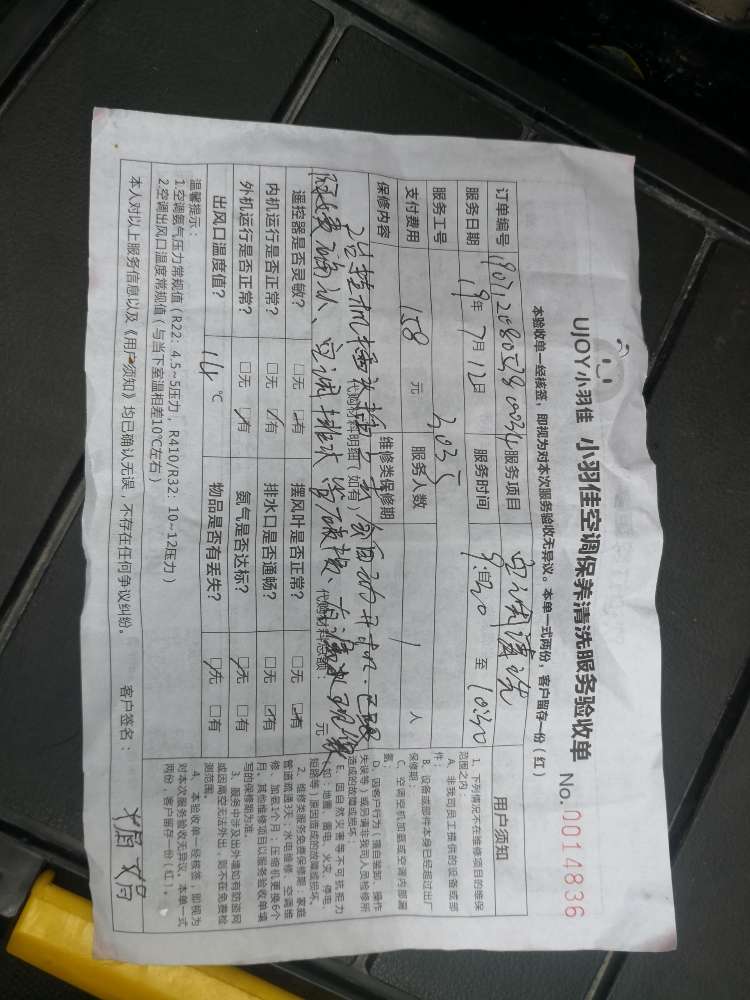 UJOY小羽佳 小羽佳空调保养清洗服务验收单 No. 0014836
本验收单一经核签，即视为对本次服务验收无异议。本单一式两份，客户留存一份（红）
订单编号 服务项目 空调清洗
服务日期 19年7月12日 服务时间 9:20 至 10:30
服务工号 3035
支付费用 158 元 服务人数 1 人
保修内容 维修类保修期
代购材料明细（如有）
代购材料总额： 元
遥控器是否灵敏？ □无 □有 摆风叶是否正常？ □无 □有
内机运行是否正常？ □无 □有 排水口是否通畅？ □无 □有
外机运行是否正常？ □无 □有 氨气是否达标？ □无 □有
出风口温度值？ 14 ℃ 物品是否有丢失？ □无 □有
温馨提示：
1.空调氨气压力常规值（R22：4.5~5压力，R410/R32：10~12压力）
2.空调出风口温度常规值（与当下室温相差10℃左右）
本人对以上服务信息以及《用户须知》均已确认无误，不存在任何争议纠纷。 客户签名：
用户须知
1、下列情况不在维修项目的维保
范围之内：
A、非我司员工提供的设备或部
件；
B、设备或部件本身已经超过出厂
保修期；
C、空调空机加氨或空调内部漏
氨；
D、因客户行为（擅自单卸、操作
失误等）或另请非我司人员检修所
造成的故障或损坏；
E、因自然灾害等不可抗拒力
（如：地震、雷电、火灾、停电、
短路等）原因造成的故障或损坏。
2、维修类服务免费保修期：家庭
管道疏通3天；水电维修、空调维
修、加氨1个月；压缩机更换6个
月、其他维修项目以服务验收单填
写的保修期为准。
3、服务中涉及出外墙如有防盗网
或因高空无法外出，则不在免费检
测范围。
4、本验收单一经核签，即视为
对本次服务验收无异议。本单一式
两份，客户留存一份（红）。